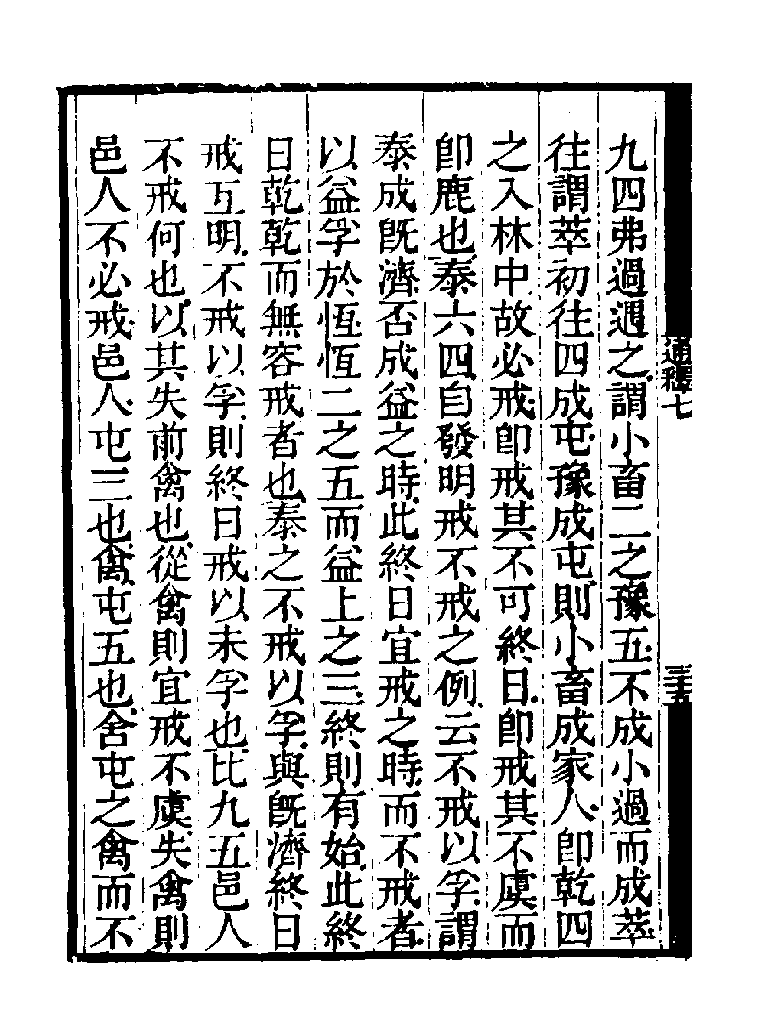 通釋七
三十五
九四弗過遇之謂小畜二之豫五不成小過而成萃
往謂萃初往四成屯豫成屯則小畜成家人卽乾四
之入林中故必戒卽戒其不可終日卽戒其不虞而
卽鹿也泰六四自發明戒不戒之例云不戒以孚謂
泰成旣濟否成益之時此終日宜戒之時而不戒者
以益孚於恆恆二之五而益上之三終則有始此終
日乾乾而無容戒者也泰之不戒以孚與旣濟終日
戒互明不戒以孚則終日戒以未孚也比九五邑人
不戒何也以其失前禽也從禽則宜戒不虞失禽則
邑人不必戒邑人屯三也禽屯五也舍屯之禽而不